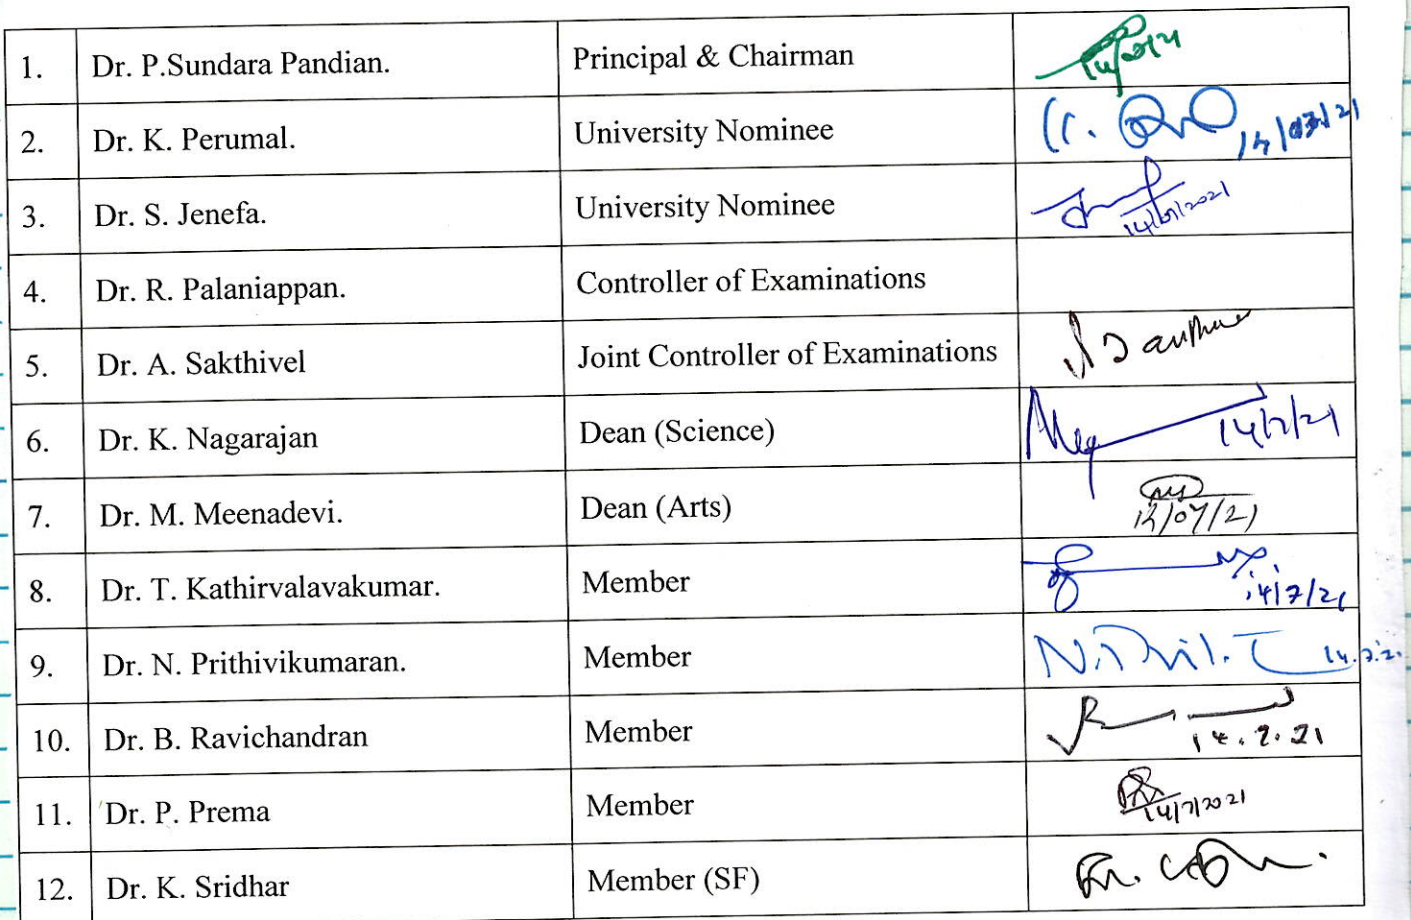 1. Dr. P.Sundara Pandian. Principal & Chairman
2. Dr. K. Perumal. University Nominee
3. Dr. S. Jenefa. University Nominee 14/07/2021
4. Dr. R. Palaniappan. Controller of Examinations
5. Dr. A. Sakthivel Joint Controller of Examinations
6. Dr. K. Nagarajan Dean (Science) 14/7/21
7. Dr. M. Meenadevi. Dean (Arts)
8. Dr. T. Kathirvalavakumar. Member 14/7/21
9. Dr. N. Prithivikumaran. Member
10. Dr. B. Ravichandran Member 14.7.21
11. Dr. P. Prema Member 14/7/2021
12. Dr. K. Sridhar Member (SF)